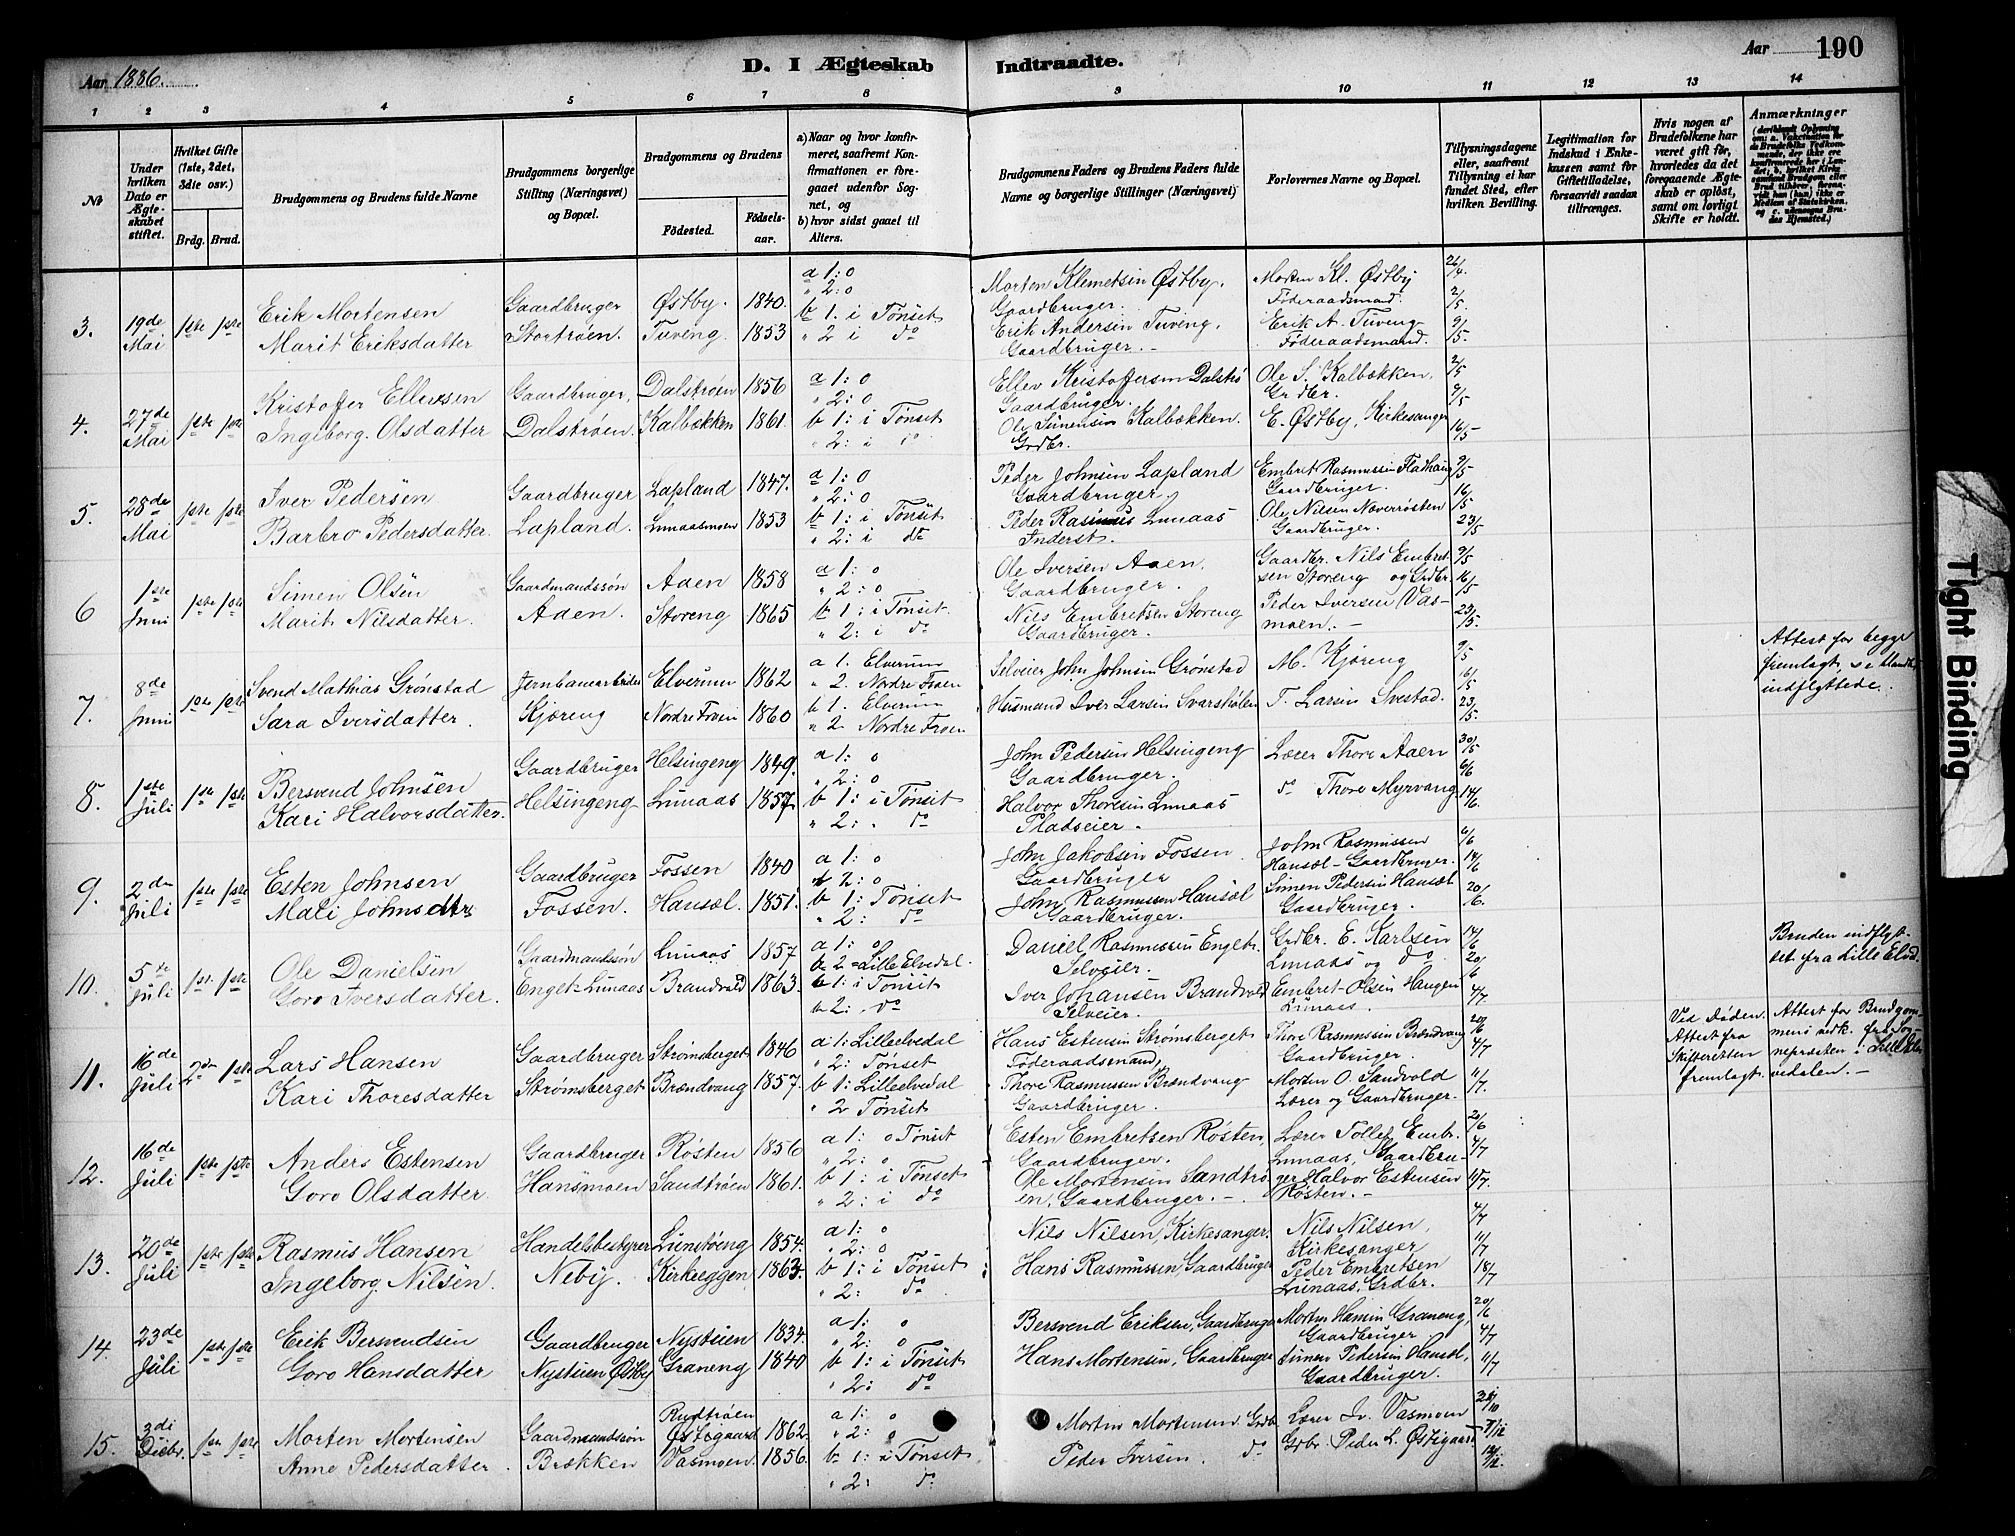 Aar 1886.
D. I Ægteskab Indtraadte.
Aar 190
1 2 3 4 5 6 7 8 9 10 11 12 13 14
No
Under hvilken Dato er Ægteskabet stiftet.
Hvilket Gifte (1ste, 2det, 3die osv.)
Brdg. Brud.
Brudgommens og Brudens fulde Navne
Brudgommens borgerlige Stilling (Næringsvei) og Bopæl.
Brudgommens og Brudens
Födested. Födselsaar.
a) Naar og hvor konfirmeret, saafremt Konfirmationen er foregaaet udenfor Sognet, og
b) hvor sidst gaaet til Alters.
Brudgommens Faders og Brudens Faders fulde Navne og borgerlige Stillinger (Næringsvei)
Forlovernes Navne og Bopæl.
Tillysningsdagene eller, saafremt Tillysning ei har fundet Sted, efter hvilken Bevilling.
Legitimation for Indskud i Enkekassen samt for Giftetilladelse, forsaavidt saadan tiltrænges.
Hvis nogen af Brudefolkene har været gift før, hvorledes da det foregaaende Ægteskab er opløst, samt om lovligt Skifte er holdt.
Anmærkninger
3. 19de Mai 1ste 1ste
Erik Mortensen
Marit Eriksdatter
Gaardbruger
Stortrøen.
Østby. 1840.
Tuveng. 1853
a 1: 0
" 2: 0
b 1. i Tønset
" 2 i do
Morten Klemetsen Østby,
Gaardbruger.
Erik Andersen Tuveng,
Gaardbruger. -
Morten Kl. Østby
Føderaadsmand.
Erik A. Tuveng
Føderaadsmand.
26/4.
2/5
9/5.
4. 27de Mai 1ste 1ste
Kristoffer Ellevsen
Ingeborg Olsdatter
Gaardbruger,
Dalstrøen.
Dalstrøen 1856
Kalbækken 1861.
a 1: 0
" 2: 0
b 1: i Tønset
" 2: i do
Ellev Kristoffersen Dalstrø
Gaardbruger.
Ole Simensen Kalbækken.
Grdbr.
Ole S. Kalbækken,
Grdbr.
E. Østby, Kirkesanger
2/5
9/5
16/5
5. 28de Mai 1ste 1ste
Iver Pedersen
Barbro Pedersdatter.
Gaardbruger
Lapland.
Lapland 1847.
Lunaasmoen 1853
a 1: 0
" 2: 0
b 1: i Tønset
" 2: i do
Peder Johnsen Lapland
Gaardbruger
Peder Rasmus Lunaas
Inderst.
Embret Rasmussen Flathaug
Gaardbruger.
Ole Nilsen Neverrøsten
Gaardbruger.
9/5
16/5
23/5
6 1ste Juni 1ste 1ste
Simen Olsen
Marit Nilsdatter.
Gaardmandssøn
Aaen.
Aaen 1858
Storeng 1865
a 1: 0
" 2: 0
b 1: i Tønset.
" 2: i do
Ole Iversen Aaen,
Gaardbruger.
Nils Embretsen Storeng
Gaardbruger.
Gaardbr. Nils Embret-
sen Storeng og Grdbr.
Peder Iversen Vas-
moen. -
9/5
16/5
23/5.
7. 8de Juni 1ste 1ste
Svend Mathias Grønstad
Sara Iversdatter.
Jernbanearbeider
Kjøreng
Elverum 1862
Nordre Froen 1860
a 1. Elverum
" 2. Nordre Froen
b 1. Elverum
" 2 Nordre Froen
Selveier John Johnsen Grønstad
Husmand Iver Larsen Svarthølen
M. Kjøreng
T. Larsen Svestad.
9/5
16/5
23/5.
Attest for begge
fremlagt,
indflyttede.
8. 1ste Juli 1ste 1ste
Bersvend Johnsen
Kari Halvorsdatter.
Gaardbruger
Helsingeng
Helsingeng 1849.
Lunaas 1857
a 1: 0
" 2: 0
b 1: i Tønset
" 2: . do
John Pedersen Helsingeng
Gaardbruger.
Halvor Thoresen Lunaas
Pladseier.
Lærer Thore Aaen
do Thore Myrvang
30/5
6/6
14/6.
9. 2den Juli 1ste 1ste
Esten Johnsen
Mali Johnsdtr
Gaardbruger
Fossen.
Fossen 1840
Hausæl. 1851.
a 1: 0
" 2: 0
b 1: Tønset
" 2: do
John Jakobsen Fossen
Gaardbruger
John Rasmussen Hausæl
Gaardbruger.
John Rasmussen
Hausæl - Gaardbruger.
Simen Pedersen Hausæl
Gaardbruger.
6/6
14/6
20/6.
10. 5te Juli 1ste 1ste
Ole Danielsen
Goro Iversdatter.
Gaardmandssøn
Enget-Lunaas
Lunaas 1857
Brandvold 1863.
a 1: 0
b 2 = Lille Elvedal.
b 1: i Tønset
b 2: . do
Daniel Rasmussen Enget.
Selveier.
Iver Johansen Brandvold
Selveier.
Grdbr. E. Karlsen
Lunaas og do
Embret Olsen Haugen
Lunaas.
14/6
20/6
4/7
Bruden indflyt-
tet fra Lille Elvd.
11. 16de Juli 2den 1ste
Lars Hansen
Kari Thoresdatter
Gaardbruger
Strømsberget
Strømsberget 1846
Brændvang 1857.
a 1: Lilleelvedal
" 2: Tønset
b 1: Lilleelvedal
" 2 Tønset
Hans Estensen Strømsberget
Føderaadsmand,
Thore Rasmussen Brændvang
Gaardbruger.
Thore Rasmussen Brændvang
Gaardbruger.
Morten O. Sandvold
Lærer og Gaardbruger.
20/6
4/7
11/7.
Ved Døden.
Attest fra
Skifteretten
fremlagt.
Attest for Brudgom-
mens vedk. fra Sog-
nepræsten i Lille El-
vedalen. -
12. 16de Juli 1ste 1ste
Anders Estensen
Goro Olsdatter.
Gaardbruger
Hansmoen
Røsten 1856
Sandtrøen 1861.
a 1: 0 Tønset
" 2: 0
b 1: i Tønset
" 2: i do
Esten Embretsen Røsten,
Gaardbruger.
Ole Mortensen Sandtrø-
en, Gaardbruger. -
Lærer Tollef Embr.
Lunaas, Gaardbru-
ger Halvor Estensen
Røsten. -
20/6
4/7
13. 20de Juli 1ste 1ste
Rasmus Hansen
Ingeborg Nilsen.
Handelsbestyrer
Neby.
Lunstøeng 1854.
Kirkeeggen 1863.
a 1: 0
" 2: 0
b 1: i Tønset
" 2: do
Nils Nilsen, Kirkesanger.
Hans Rasmussen, Gaardbruger
Nils Nilsen,
Kirkesanger
Peder Embretsen
Lunaas, Grdbr.
4/7
11/7
18/7
14. 23de Juli 1ste 1ste
Erik Bersvendsen
Goro Hansdatter
Gaardbruger
Nystuen Østby
Nystuen 1834.
Graneng 1840
a 1: 0
" 2: 0
b 1: i Tønset
" 2: do
Bersvend Eriksen, Gaardbruger
Hans Mortensen, Gaardbruger
Morten Hansen Graneng,
Gaardbruger
Simen Pedersen Hausæl,
Gaardbruger.
20/6
4/7
11/7
15. 3di Decbr. 1ste 1ste
Morten Mortensen
Anne Pedersdatter.
Gaardmandssøn
Brækken
Rudtrøen
Østigaard 1862.
Vasmoen 1856.
a 1: 0
" 2: 0
b 1: i Tønset
" 2: do
Morten Mortensen Grdb.
Peder Iversen do
Lærer Iv. Vasmoen
Grbr. Peder L. Østigaard
Tight Binding